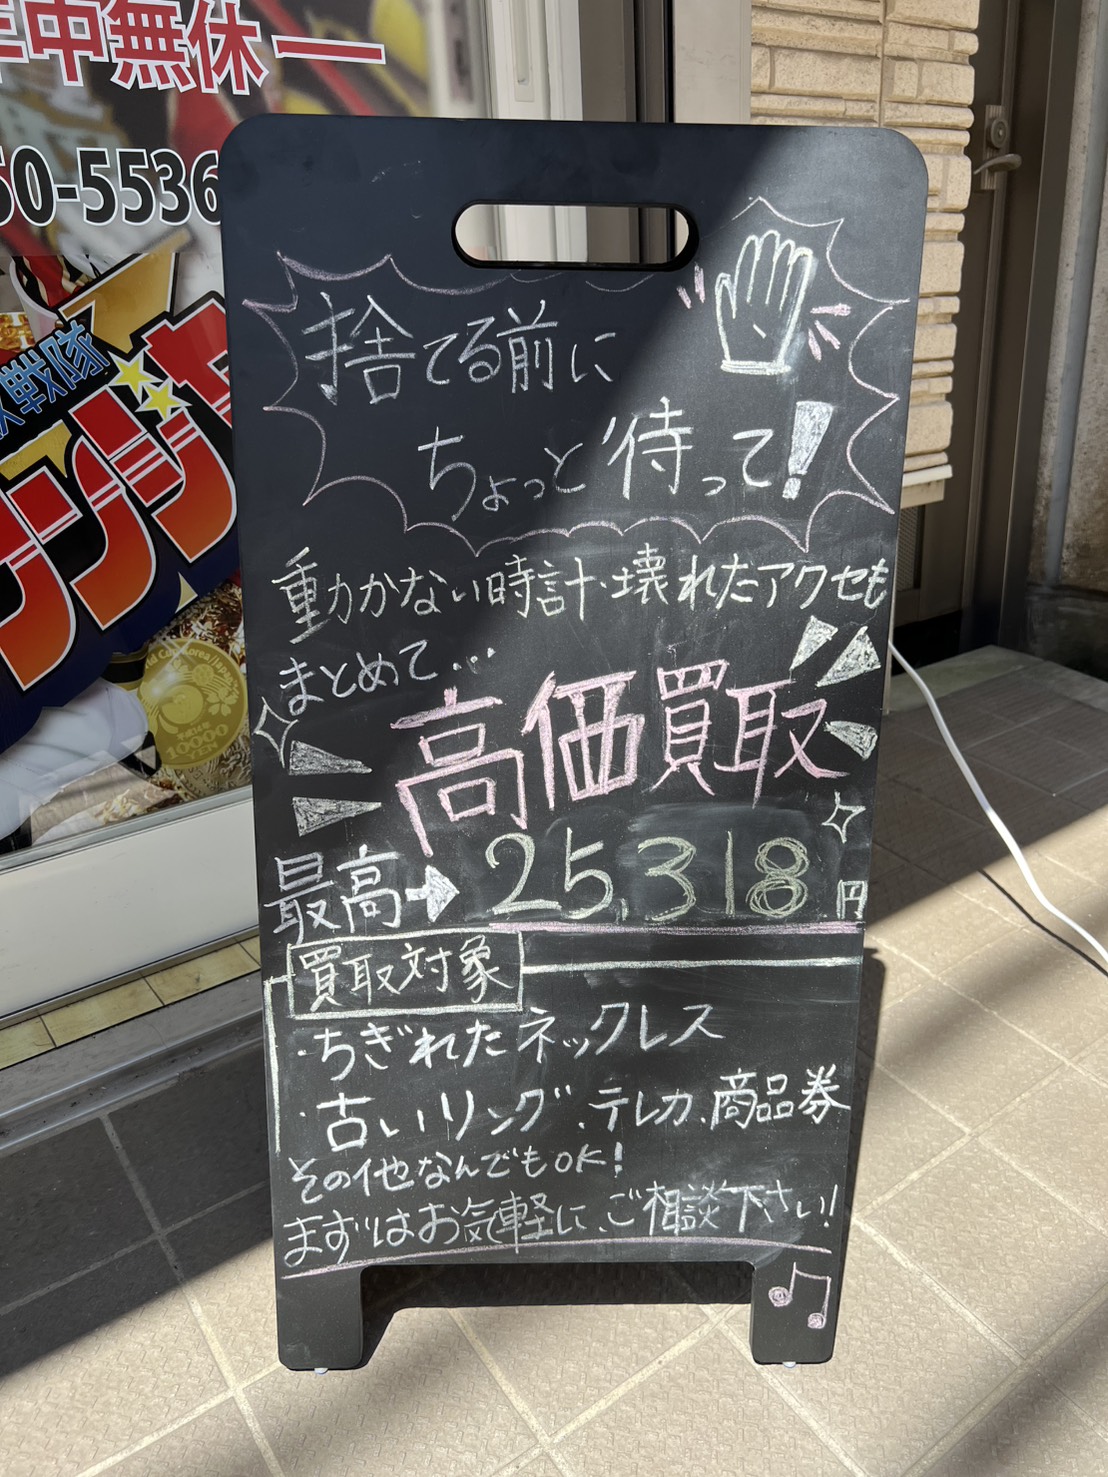 年中無休
50-5536
戦隊
捨てる前に
ちょっと待って!
動かない時計・壊れたアクセも
まとめて…
高価買取
最高→25,318円
買取対象
・ちぎれたネックレス
・古いリング、テレカ、商品券
その他なんでもOK!
まずはお気軽に、ご相談下さい!
10000